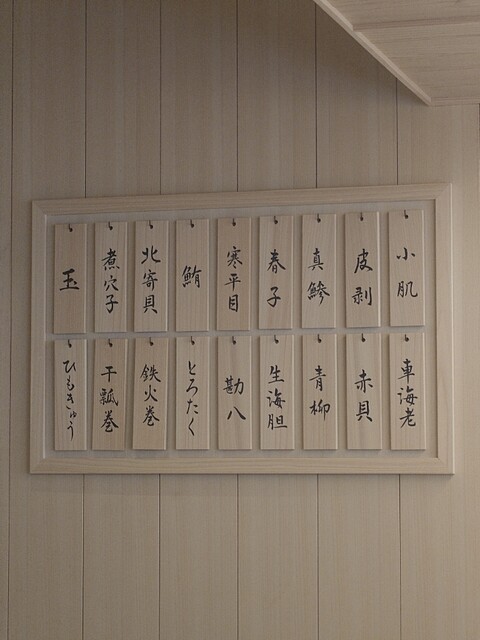 小肌
皮剥
真鯵
春子
寒平目
鮪
北寄貝
煮穴子
玉
車海老
赤貝
青柳
生海胆
勘八
とろたく
鉄火巻
干瓢巻
ひもきゅう